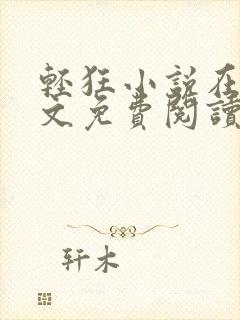 輕狂小說在
文免費閱讀
轩木